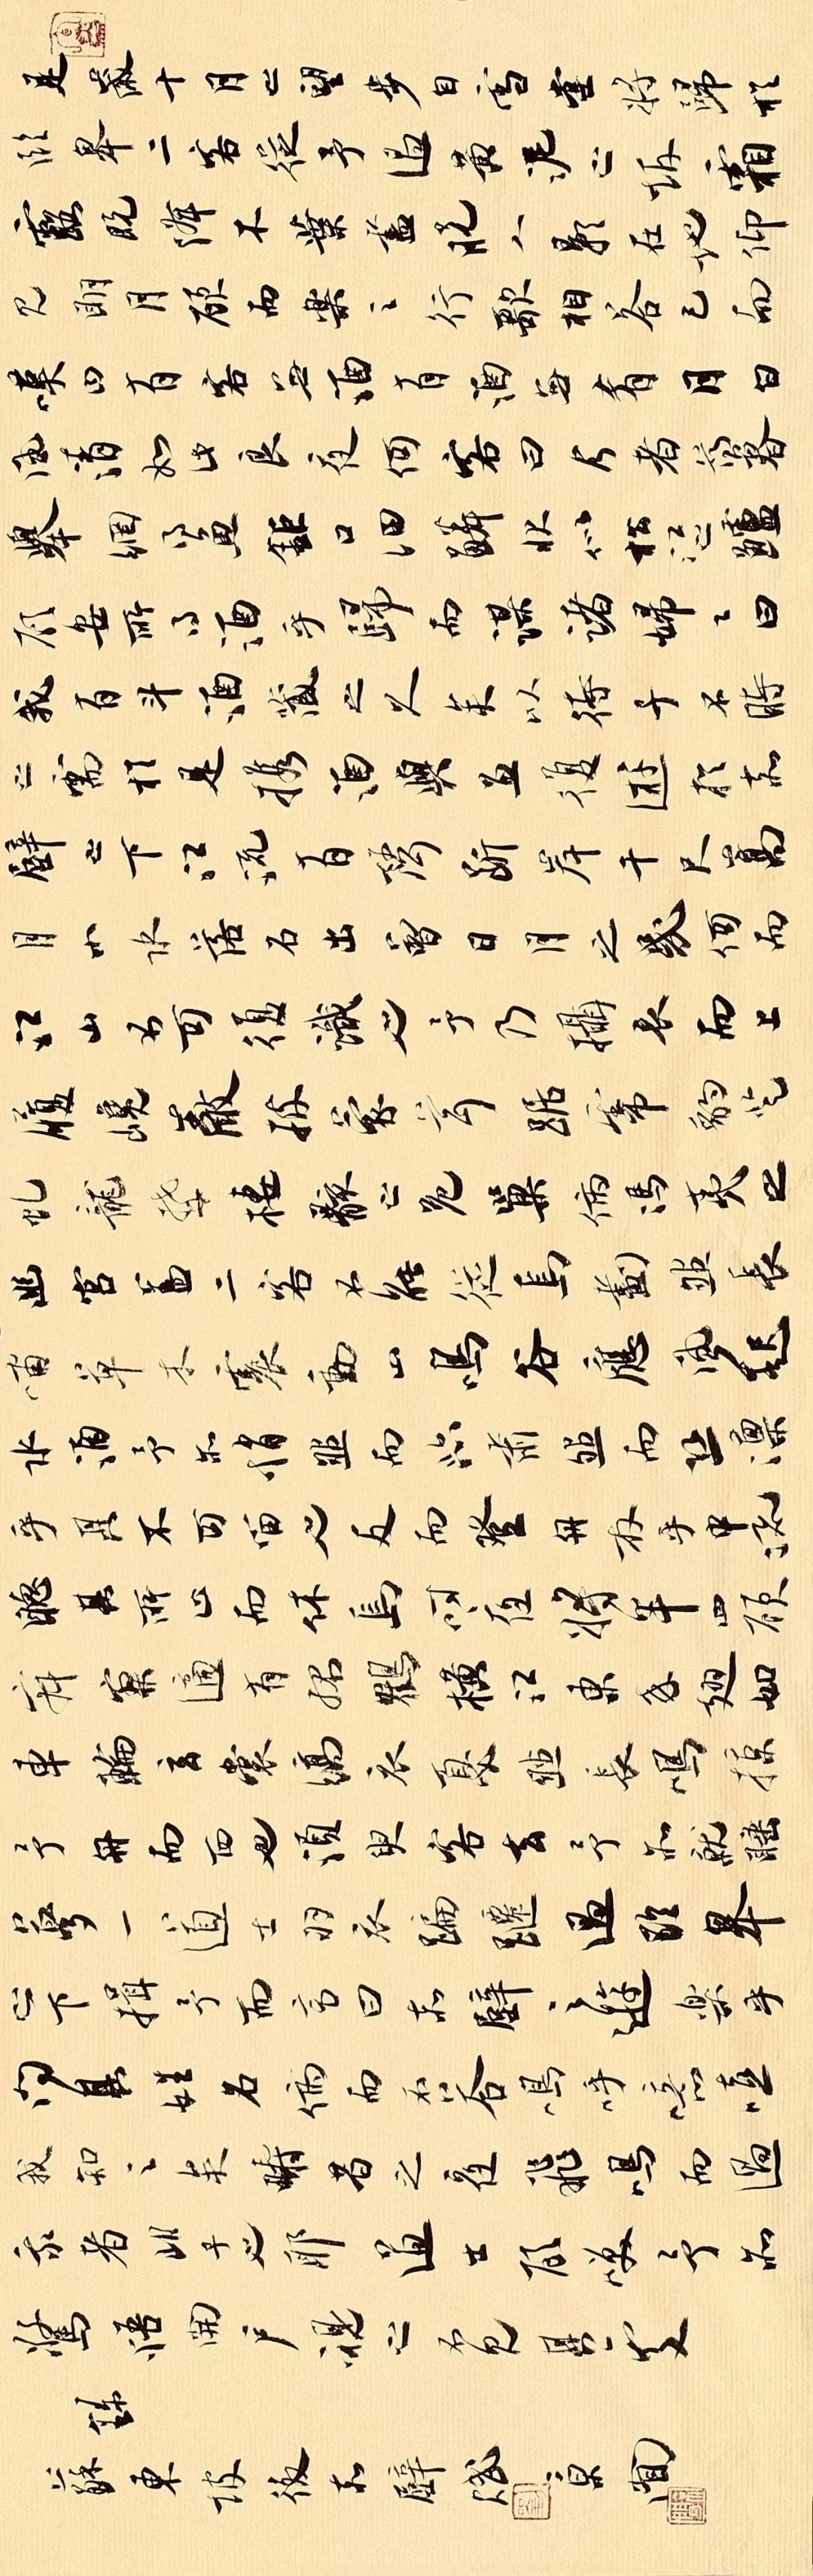 是歲十月之望步自雪堂將歸於
臨皋二客從予過黃泥之坂霜
露既降木葉盡脫人影在地仰
見明月顧而樂之行歌相答已而
嘆曰有客無酒有酒無肴月白
風清如此良夜何客曰今者薄暮
舉網得魚鉅口細鱗狀似松江之鱸
顧安所得酒乎歸而謀諸婦々曰
我有斗酒藏之久矣以待子不時
之需於是攜酒與魚復遊於赤
壁之下江流有聲斷岸千尺山高
月小水落石出曾日月之幾何而
江山不可復識也予乃攝衣而上
履巉巖披蒙茸踞虎豹登
虬龍攀棲鶻之危巢俯馮夷之
幽宮蓋二客不能從焉劃然長
嘯草木震動山鳴谷應風起
水涌予亦悄然而悲肅然而恐凜
乎其不可留也反而登舟放乎中流
聽其所止而休焉時夜將半四顧
寂寥適有孤鶴橫江東來翅如
車輪玄裳縞衣戛然長鳴掠
予舟而西也須臾客去予亦就睡
夢一道士羽衣蹁躚過臨皋
之下揖予而言曰赤壁之遊樂乎
問其姓名俯而不答嗚呼噫嘻
我知之矣疇昔之夜飛鳴而過
我者非子也耶道士顧笑予亦
驚悟開戶視之不見其處
錄
蘇東坡後赤壁賦